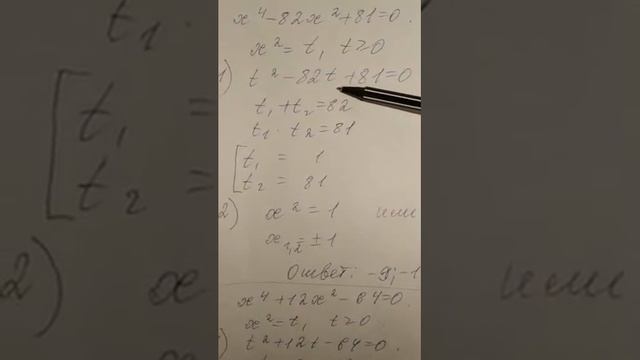 x⁴-82x²+81=0.
x²=t, t≥0
1) t²-82t+81=0
t₁+t₂=82
t₁·t₂=81
[t₁ = 1
t₂ = 81
2) x²=1 или
x₁,₂=±1
Ответ: -9;-1
x⁴+12x²-64=0.
x²=t, t≥0
t²+12t-64=0.